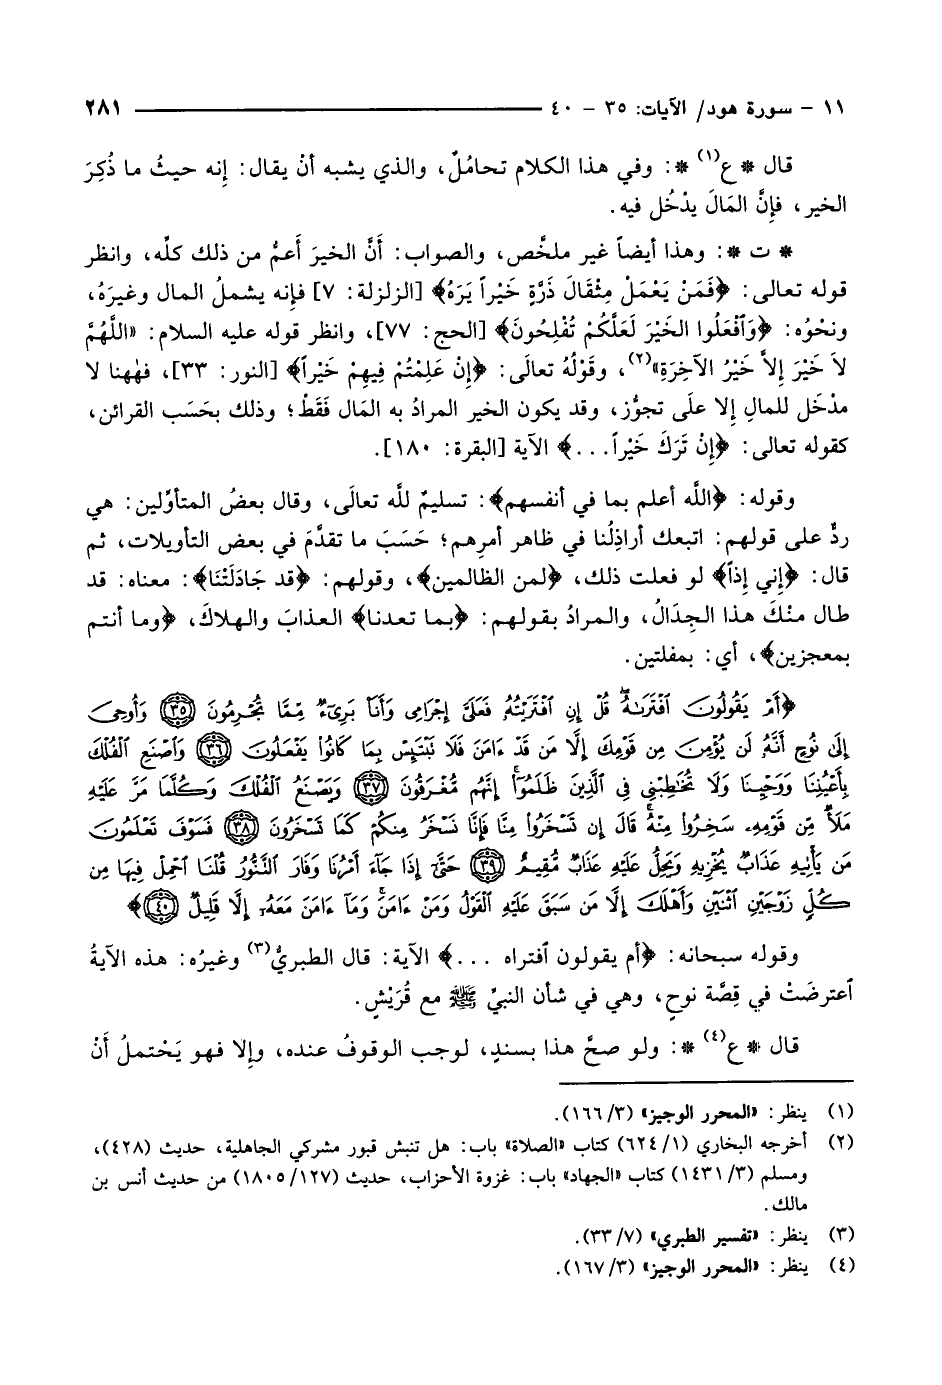 ١١ - سورة هود/ الآيات: ٣٥ - ٤٠ ٢٨١
قال * ع(١) *: وفي هذا الكلام تحامُلٌ، والذي يشبه أنْ يقال: إِنه حيثُ ما ذُكِرَ
الخير، فإِنَّ المَالَ يدْخُل فيه.
* ت *: وهذا أيضاً غير ملخَّص، والصواب: أَنَّ الخيرَ أَعمُّ من ذلك كلِّه، وانظر
قوله تعالى: ﴿فَمَنْ يَعْمَلْ مِثْقَالَ ذَرَّةٍ خَيْراً يَرَهُ﴾ [الزلزلة: ٧] فإِنه يشملُ المال وغيرَهُ،
ونحْوُه: ﴿وَٱفْعَلُوا الخَيْرَ لَعَلَّكُمْ تُفْلِحُونَ﴾ [الحج: ٧٧]، وانظر قوله عليه السلام: «اللَّهُمَّ
لاَ خَيْرَ إِلاَّ خَيْرُ الآخِرَةِ»(٢)، وقَوْلُهُ تعالَى: ﴿إِنْ عَلِمْتُمْ فِيهِمْ خَيْراً﴾ [النور: ٣٣]، فهٰهنا لا
مدْخَل للمالِ إِلا علَى تجوُّز، وقد يكون الخير المرادُ به المَال فَقَطْ؛ وذلك بحَسَب القرائن،
كقوله تعالى: ﴿إِنْ تَرَكَ خَيْراً...﴾ الآية [البقرة: ١٨٠].
وقوله: ﴿اللَّه أعلم بما في أنفسهم﴾: تسليمٌ للَّه تعالَى، وقال بعضُ المتأوِّلين: هي
ردٌّ على قولهم: اتبعك أراذِلُنا في ظاهر أمرِهم؛ حَسَبَ ما تقدَّمَ في بعض التأويلات، ثم
قال: ﴿إني إِذاً﴾ لو فعلت ذلك، ﴿لمن الظالمين﴾، وقولهم: ﴿قد جَادَلَتْنَا﴾: معناه: قد
طال منْكَ هذا الجِدَالُ، والمرادُ بقولهم: ﴿بما تعدنا﴾ العذابَ والهلاكَ، ﴿وما أنتم
بمعجزين﴾، أي: بمفلتين.
﴿أَمْ يَقُولُونَ ٱفْتَرَىٰهُ قُلْ إِنِ ٱفْتَرَيْتُهُۥ فَعَلَىَّ إِجْرَامِى وَأَنَا۠ بَرِىٓءٌ مِّمَّا تُجْرِمُونَ ٣٥ وَأُوحِىَ
إِلَىٰ نُوحٍ أَنَّهُۥ لَن يُؤْمِنَ مِن قَوْمِكَ إِلَّا مَن قَدْ ءَامَنَ فَلَا تَبْتَئِسْ بِمَا كَانُوا۟ يَفْعَلُونَ ٣٦ وَٱصْنَعِ ٱلْفُلْكَ
بِأَعْيُنِنَا وَوَحْيِنَا وَلَا تُخَٰطِبْنِى فِى ٱلَّذِينَ ظَلَمُوٓا۟ إِنَّهُم مُّغْرَقُونَ ٣٧ وَيَصْنَعُ ٱلْفُلْكَ وَكُلَّمَا مَرَّ عَلَيْهِ
مَلَأٌ مِّن قَوْمِهِۦ سَخِرُوا۟ مِنْهُ قَالَ إِن تَسْخَرُوا۟ مِنَّا فَإِنَّا نَسْخَرُ مِنكُمْ كَمَا تَسْخَرُونَ ٣٨ فَسَوْفَ تَعْلَمُونَ
مَن يَأْتِيهِ عَذَابٌ يُخْزِيهِ وَيَحِلُّ عَلَيْهِ عَذَابٌ مُّقِيمٌ ٣٩ حَتَّىٰٓ إِذَا جَآءَ أَمْرُنَا وَفَارَ ٱلتَّنُّورُ قُلْنَا ٱحْمِلْ فِيهَا مِن
كُلٍّ زَوْجَيْنِ ٱثْنَيْنِ وَأَهْلَكَ إِلَّا مَن سَبَقَ عَلَيْهِ ٱلْقَوْلُ وَمَنْ ءَامَنَ وَمَآ ءَامَنَ مَعَهُۥٓ إِلَّا قَلِيلٌ ٤٠﴾
وقوله سبحانه: ﴿أم يقولون ٱفتراه ...﴾ الآية: قال الطبريُّ(٣) وغيرُه: هذه الآيةُ
ٱعترضَتْ في قِصَّة نوحٍ، وهي في شأن النبيِّ ﷺ مع قُرَيْشٍ.
قال * ع(٤) *: ولو صحَّ هذا بسندٍ، لوجب الوقوفُ عنده، وإِلا فهو يَحْتملُ أَنْ
(١) ينظر: «المحرر الوجيز» (١٦٦/٣).
(٢) أخرجه البخاري (٦٢٤/١) كتاب «الصلاة» باب: هل تنبش قبور مشركي الجاهلية، حديث (٤٢٨)،
ومسلم (١٤٣١/٣) كتاب «الجهاد» باب: غزوة الأحزاب، حديث (١٨٠٥/١٢٧) من حديث أنس بن
مالك.
(٣) ينظر: «تفسير الطبري» (٣٣/٧).
(٤) ينظر: «المحرر الوجيز» (١٦٧/٣).